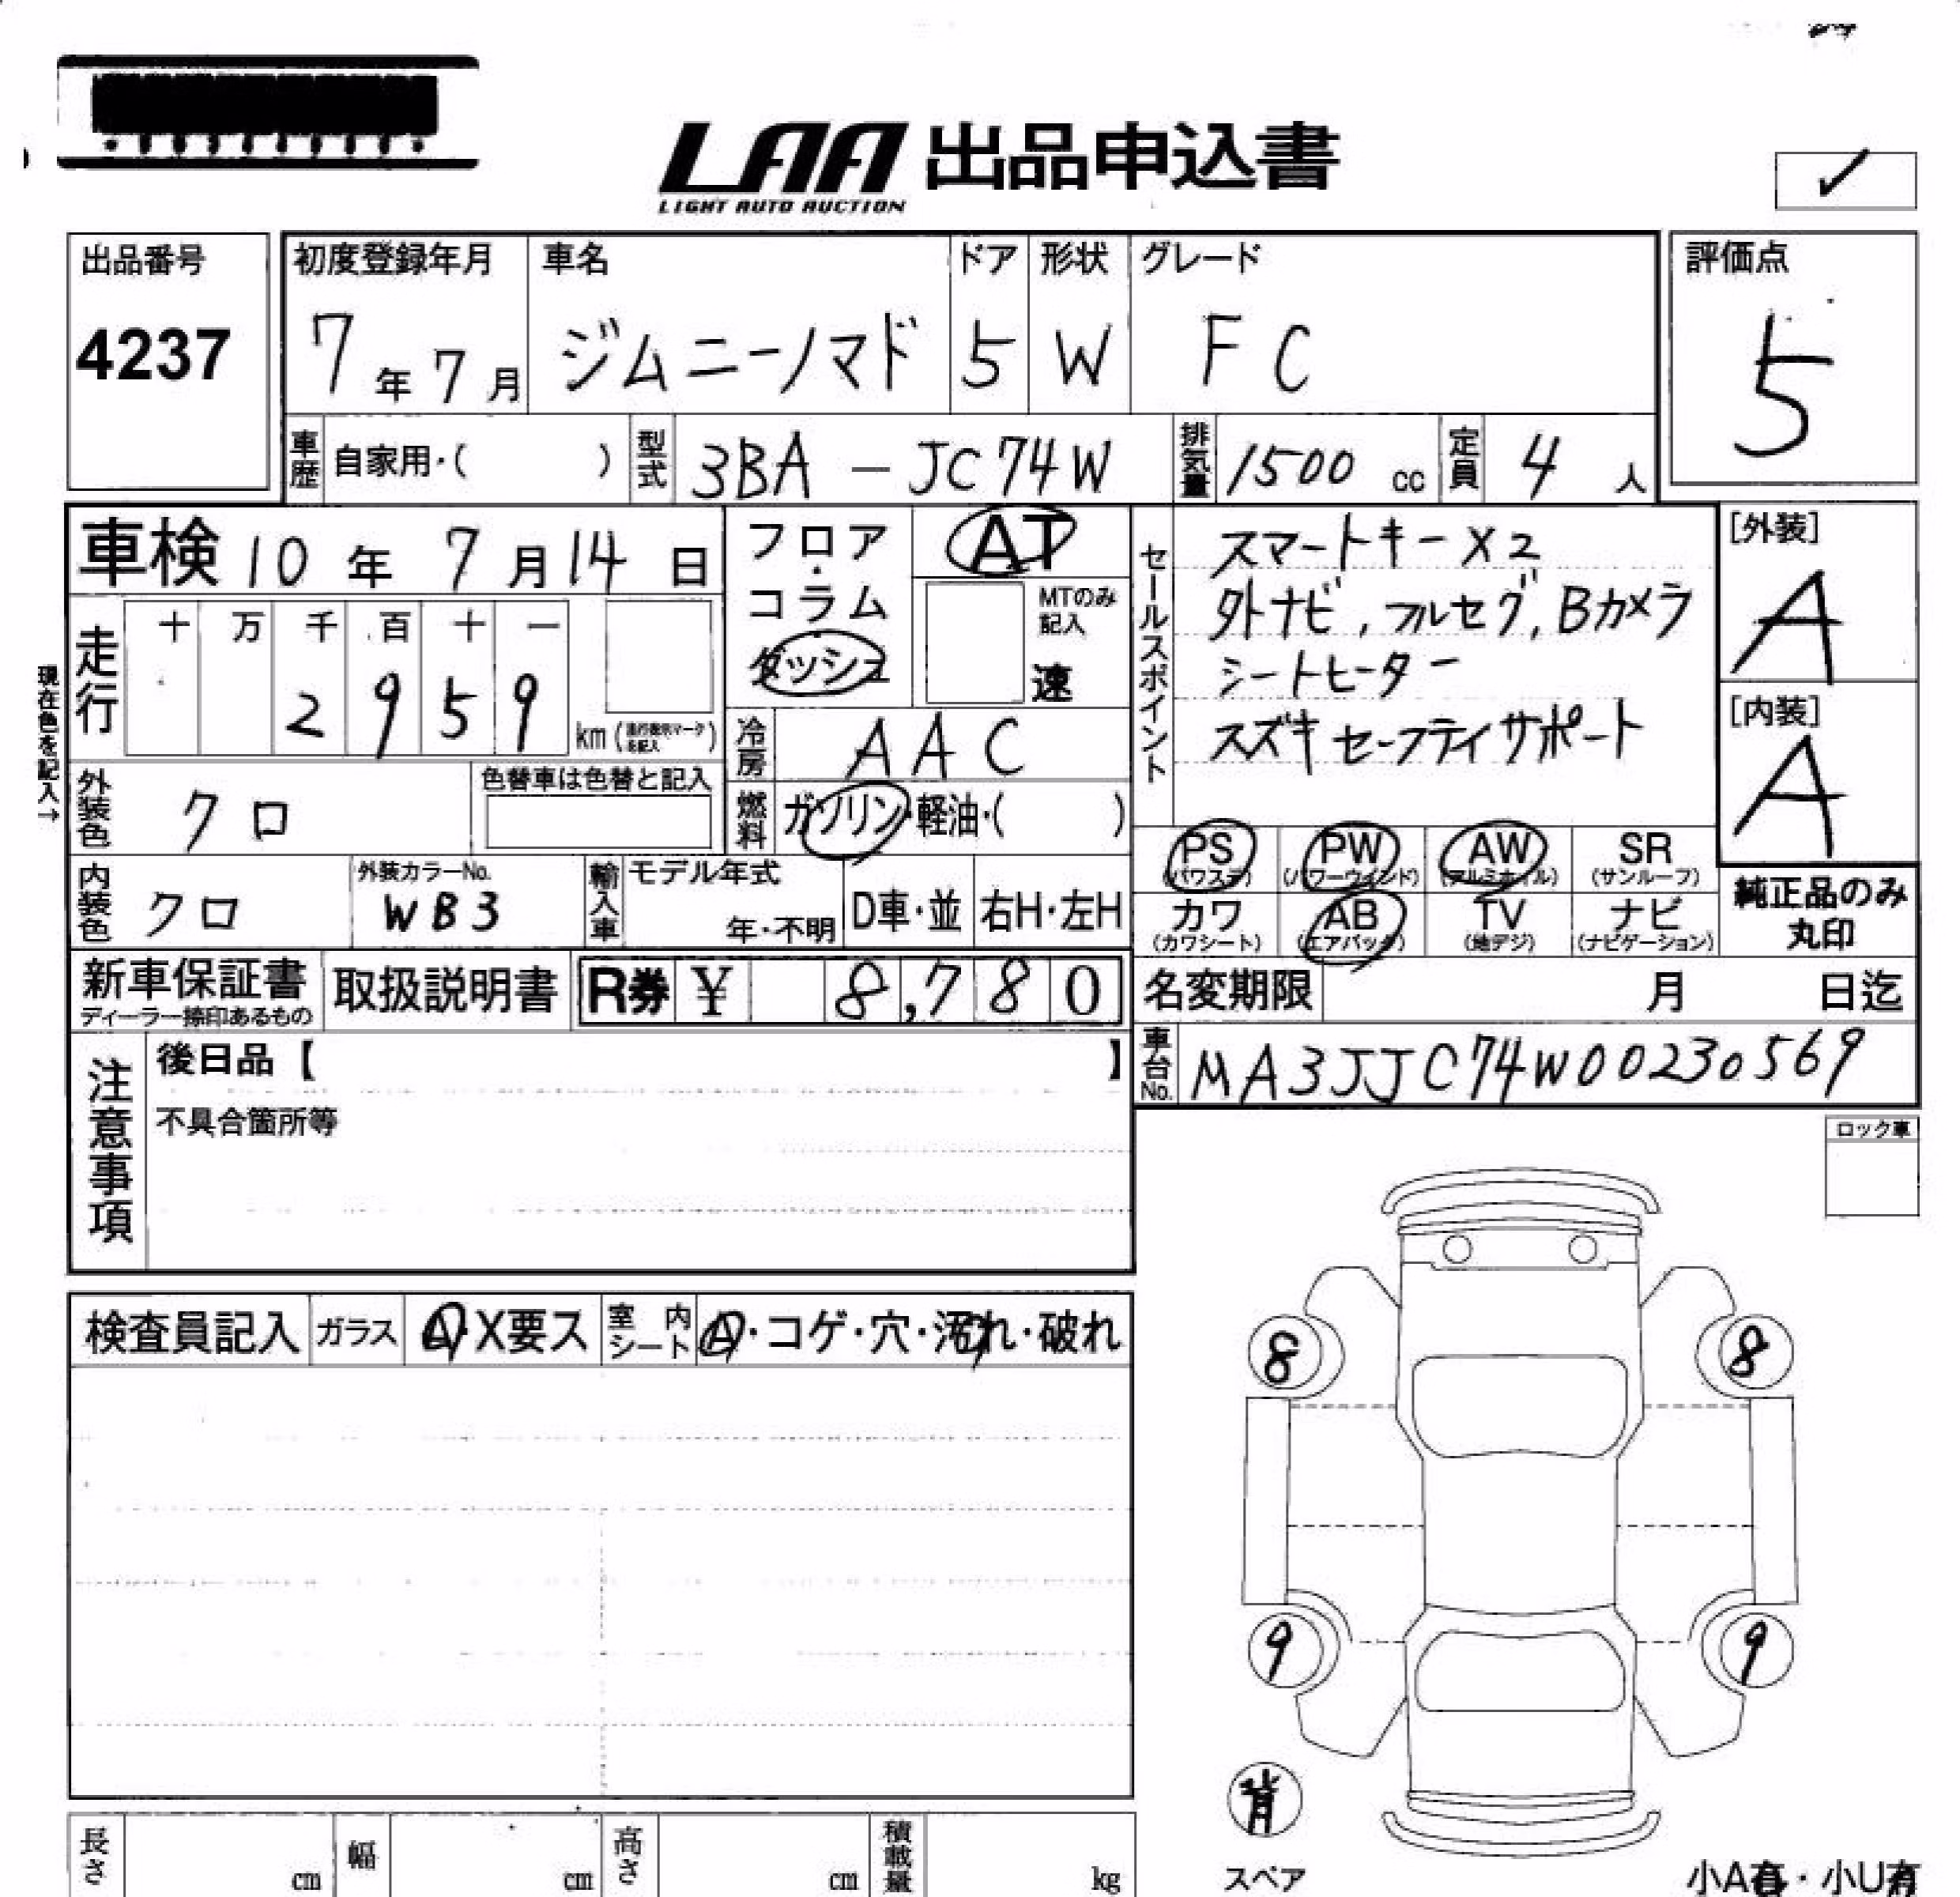 LAA 出品申込書
LIGHT AUTO AUCTION
✓
出品番号
4237
初度登録年月
7年7月
車名
ジムニーノマド
ドア
5
形状
W
グレード
FC
評価点
5
車歴 自家用・( )
型式 3BA-JC74W
排気量 1500 cc
定員 4 人
車検 10年 7月 14日
フロア・コラム
ダッシュ
AT
MTのみ記入
速
セールスポイント
スマートキーX2
外ナビ,フルセグ,Bカメラ
シートヒーター
スズキセーフティサポート
[外装]
A
[内装]
A
現在色を記入→
走行
十 万 千 百 十 一
2 9 5 9
km
冷房 AAC
燃料 ガソリン・軽油・( )
外装色 クロ
色替車は色替と記入
内装色 クロ
外装カラーNo.
WB3
輸入車
モデル年式
年・不明
D車・並
右H・左H
PS (パワステ)
PW (パワーウィンド)
AW (アルミホイル)
SR (サンルーフ)
カワ (カワシート)
AB (エアバック)
TV (地デジ)
ナビ (ナビゲーション)
純正品のみ
丸印
新車保証書
ディーラー捺印あるもの
取扱説明書
R券 ¥ 8,780
名変期限 月 日迄
車台No. MA3JJC74W00230569
注意事項
後日品【 】
不具合箇所等
ロック車
検査員記入
ガラス A・X要ス
室内シート A・コゲ・穴・汚れ・破れ
8 8
9 9
背
スペア
長さ cm
幅 cm
高さ cm
積載量 kg
小A有・小U有